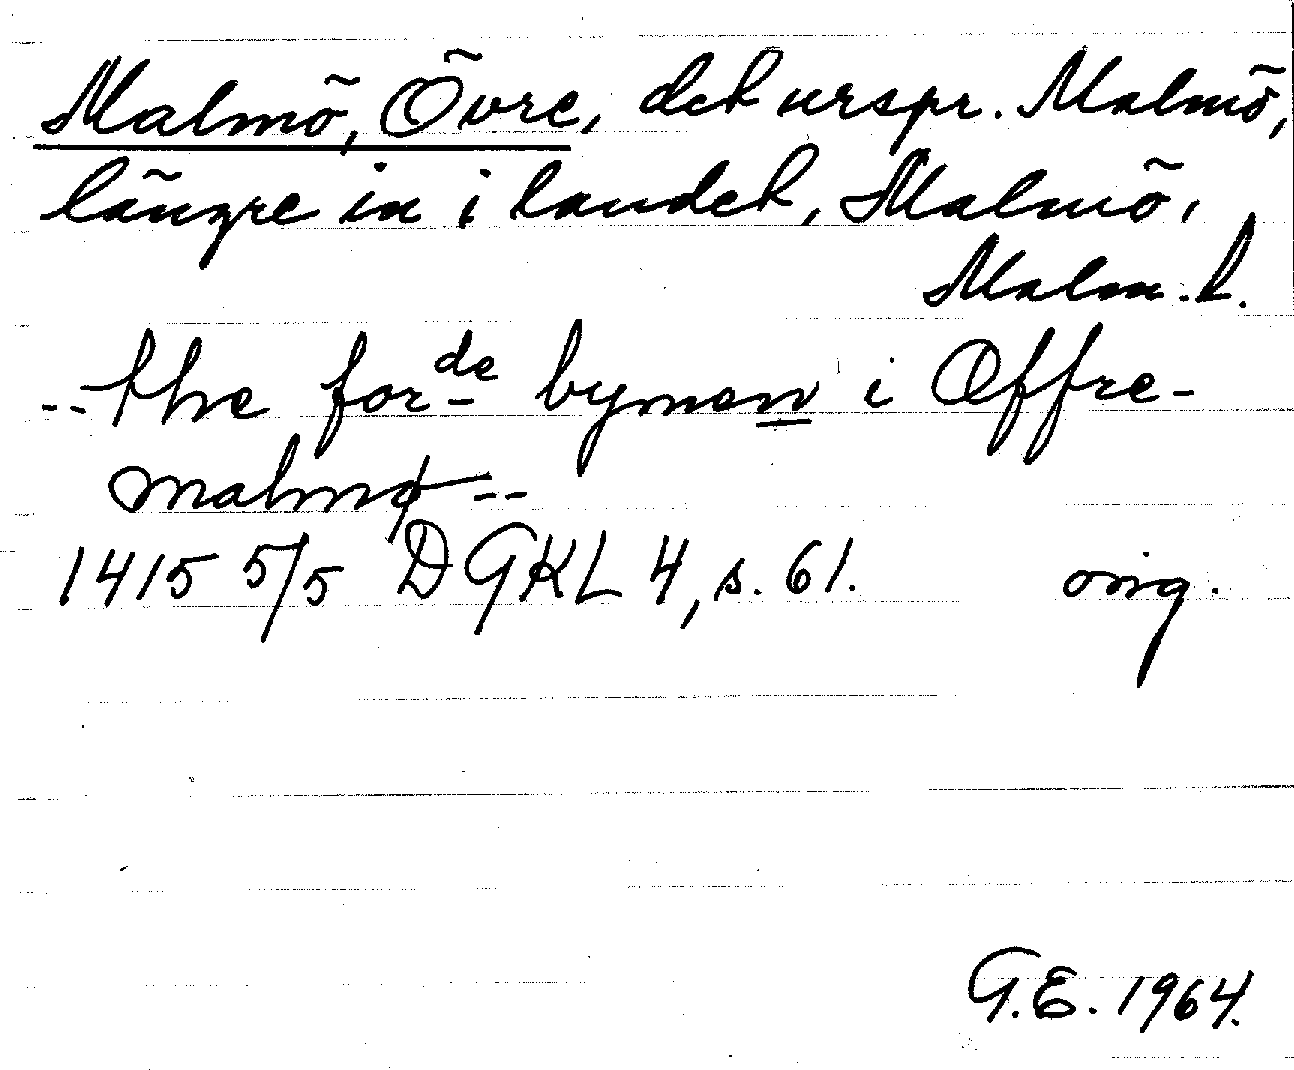 Malmö, Övre, det urspr. Malmö,
längre in i landet, Malmö,
Malm.l.
-- the forde bymen i Offre-
malmø --
1415 5/5 DGKL 4, s. 61. orig.
G.E. 1964.